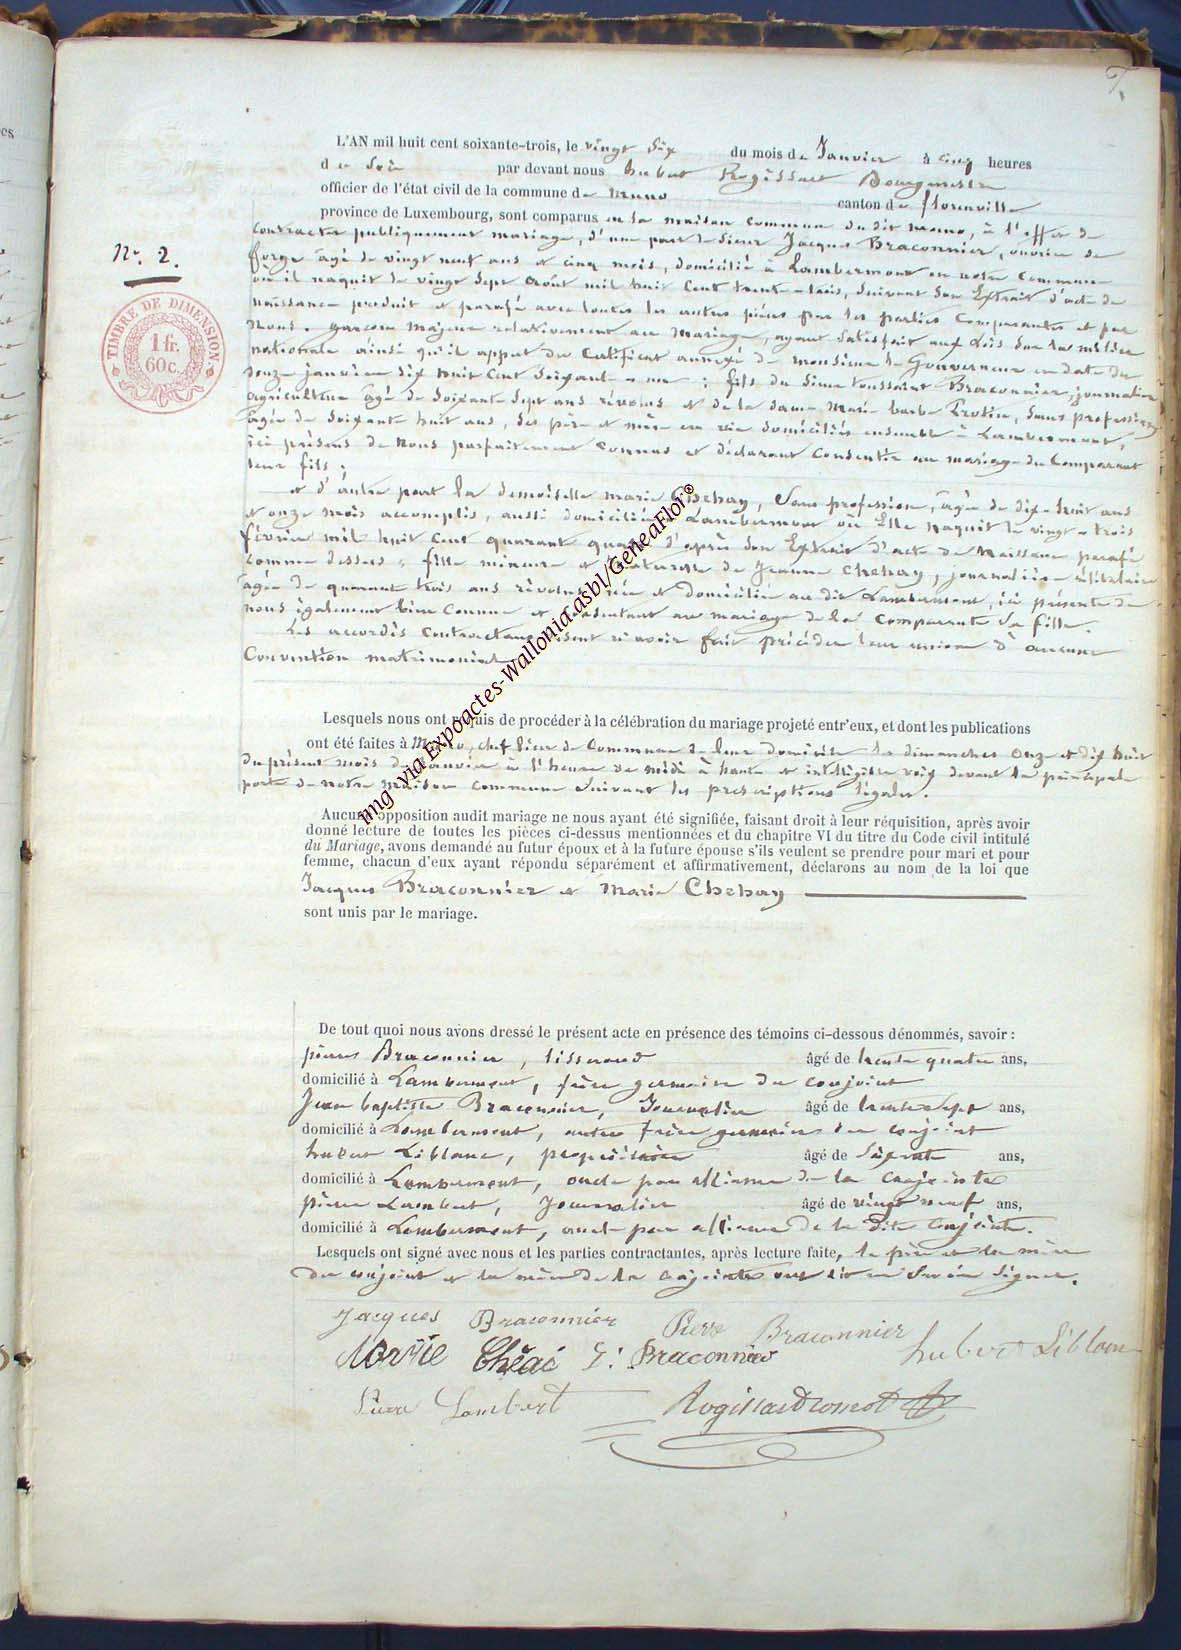 L'AN mil huit cent soixante-trois, le vingt six du mois de Janvier à cinq heures
d u soir par devant nous hubert Rogissart Bourgmestre
officier de l'état civil de la commune de muno canton de florenville
province de Luxembourg, sont comparus en la maison commune du dit muno, à l'effet de
contracter publiquement mariage, d'une part le sieur Jacques Braconnier, ouvrier de
forge âgé de vingt neuf ans et cinq mois, domicilié à Lambermont en notre commune
où il naquit le vingt sept août mil huit cent trente-trois, suivant son Extrait d'acte de
naissance produit et paraphé avec toutes les autres pièces par les parties comparantes et par
Nous. garçon majeur relativement au mariage, ayant satisfait aux Lois sur la milice
nationale ainsi qu'il appert du certificat annexé de monsieur le Gouverneur en date du
onze janvier dix huit cent soixante-un ; fils du sieur toussaint Braconnier, journalier
agriculteur âgé de soixante sept ans révolus et de la dame Marie barbe sans profession,
âgée de soixante huit ans, ses père et mère en vie domiciliés ensemble à Lambermont,
ici présens de Nous parfaitement connus et déclarant consentir au mariage du comparant
leur fils ;
et d'autre part la demoiselle marie Chehay, sans profession, âgée de dix-huit ans
et onze mois accomplis, aussi domiciliée à Lambermont où Elle naquit le vingt-trois
février mil huit cent quarante quatre d'après son Extrait d'acte de Naissance parafé
comme dessus, fille mineure et naturelle de Jeanne Chehay, journalière célibataire
âgée de quarante trois ans révolus, née et domiciliée au dit Lambermont, ici présente de
nous également bien connue et consentant au mariage de la comparante sa fille.
Les accordés contractans disent n'avoir fait précéder leur union d'aucune
Convention matrimoniale.
Nº. 2.
TIMBRE DE DIMENSION
1 fr.
60 c.
Lesquels nous ont requis de procéder à la célébration du mariage projeté entr'eux, et dont les publications
ont été faites à Muno, chef lieu de Commune de leur domicile les dimanches onze et dix huit
du présent mois de Janvier à l'heure de midi à haute et intelligible voix devant la principale
porte de notre maison commune suivant les prescriptions légales.
Aucune opposition audit mariage ne nous ayant été signifiée, faisant droit à leur réquisition, après avoir
donné lecture de toutes les pièces ci-dessus mentionnées et du chapitre VI du titre du Code civil intitulé
du Mariage, avons demandé au futur époux et à la future épouse s'ils veulent se prendre pour mari et pour
femme, chacun d'eux ayant répondu séparément et affirmativement, déclarons au nom de la loi que
Jacques Braconnier et Marie Chehay
sont unis par le mariage.
De tout quoi nous avons dressé le présent acte en présence des témoins ci-dessous dénommés, savoir :
pierre Braconnier, tisserand âgé de trente quatre ans,
domicilié à Lambermont, frère germain du conjoint
Jean baptiste Braconnier, Journalier âgé de trente sept ans,
domicilié à Lambermont, autre frère germain du conjoint
hubert Liblanc, propriétaire âgé de soixante ans,
domicilié à Lambermont, oncle par alliance de la conjointe
pierre Lambert, Journalier âgé de vingt neuf ans,
domicilié à Lambermont, oncle par alliance de la dite conjointe.
Lesquels ont signé avec nous et les parties contractantes, après lecture faite, le père et la mère
du conjoint et la mère de la conjointe ont dit ne savoir signer.
Jacques Braconnier Pierre Braconnier
Marie Chéai J: Braconnier hubert Liblanc
Pierre Lambert
img via Expoactes-Wallonia.asbl/GeneaFlor®